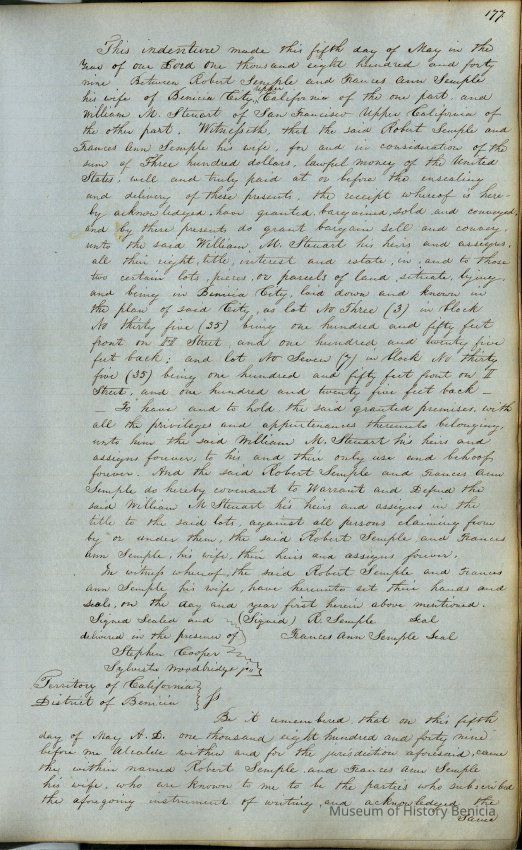 177
This indenture made this fifth day of May in the
Year of our Lord One thousand eight hundred and forty
nine Between Robert Semple and Frances Ann Semple
his wife of Benicia City, upper California of the one part, and
William M. Steuart of San Francisco Upper California of
the other part, Witnesseth, that the said Robert Semple and
Frances Ann Semple his wife, for and in consideration of the
sum of Three hundred dollars, lawful money of the United
States, well and truly paid at or before the ensealing
and delivery of these presents, the receipt whereof is here-
by acknowledged, have granted, bargained, sold and conveyed,
and by these presents do grant bargain sell and convey,
unto the said William M. Steuart his heirs and assigns,
all their right, title, interest and estate, in, and to those
two certain lots, pieces, or parcels of land, situate, lying,
and being in Benicia City, laid down and known in
the plan of said City, as lot No Three (3) in block
No thirty five (35) being one hundred and fifty feet
front on Street, and one hundred and twenty five
feet back; and lot No Seven (7) in block No thirty
five (35) being one hundred and fifty feet front on
Street, and one hundred and twenty five feet back —
— To have and to hold the said granted premises, with
all the privileges and appurtenances thereunto belonging,
unto him the said William M. Steuart his heirs and
assigns forever, to his and their only use and behoof
forever. And the said Robert Semple and Frances Ann
Semple do hereby covenant to Warrant and Defend the
said William M Steuart his heirs and assigns in the
title to the said lots, against all persons claiming from
by or under them, the said Robert Semple and Frances
Ann Semple, his wife, their heirs and assigns forever.
In witness whereof, the said Robert Semple and Frances
Ann Semple his wife, have hereunto set their hands and
seals, on the day and year first herein above mentioned.
Signed Sealed and (Signed) R. Semple Seal
delivered in the presence of Frances Ann Semple Seal
Stephen Cooper
Sylvester Woodbridge jr
Territory of California
District of Benicia
Be it remembered that on this fifth
day of May A.D. one thousand eight hundred and forty nine
before me Alcalde within and for the jurisdiction aforesaid, came
the within named Robert Semple and Frances Ann Semple
his wife, who are known to me to be the parties who subscribed
the aforegoing instrument of writing, and acknowledged the
same
Museum of History Benicia